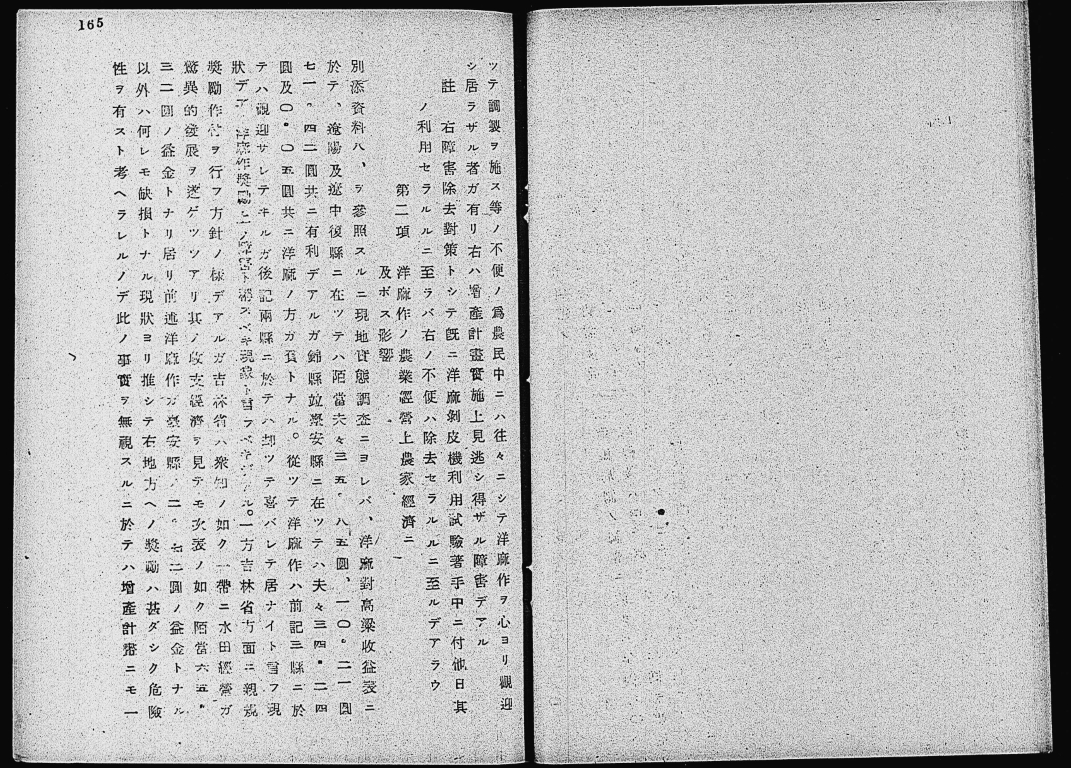 165
ツテ調製ヲ施ス等ノ不便ノ爲農民中ニハ往々ニシテ洋麻作ヲ心ヨリ觀迎
シ居ラザル者ガ有リ右ハ增產計畫實施上見逃シ得ザル障害デアル
註 右障害除去對策トシテ旣ニ洋麻剝皮機利用試驗著手中ニ付他日其
ノ利用セラルルニ至ラバ右ノ不便ハ除去セラルルニ至ルデアラウ
第二項 洋麻作ノ農業經營上農家經濟ニ
及ボス影響
別添資料八、ヲ參照スルニ現地實態調査ニヨレバ、洋麻對高粱收益表ニ
於テ、遼陽及遼中後縣ニ在ツテハ陌當夫々三五。八五圓、一〇。二一圓
七一。四二圓共ニ有利デアルガ錦縣竝臺安縣ニ在ツテハ夫々三四。二四
圓及〇。〇五圓共ニ洋麻ノ方ガ負トナル。從ツテ洋麻作ハ前記三縣ニ於
テハ觀迎サレテキルガ後記兩縣ニ於テハ却ツテ喜バレテ居ナイト言フ現
狀デア 洋麻作獎勵上ノ障害ト稱スベキ現象ト言ラベキデアル。一方吉林省方面ニ親規
獎勵作付ヲ行フ方針ノ樣デアルガ吉林省ハ衆知ノ如ク一帶ニ水田經營ガ
驚異的發展ヲ遂ゲツツアリ其ノ收支經濟ヲ見テモ次表ノ如ク陌當六五。
三二圓ノ益金トナリ居リ前述洋麻作ガ臺安縣ノ二。 二圓ノ益金トナル
以外ハ何レモ缺損トナル現狀ヨリ推シテ右地方ヘノ獎勵ハ甚ダシク危險
性ヲ有スト考ヘラレルノデ此ノ事實ヲ無視スルニ於テハ增產計畫ニモ一